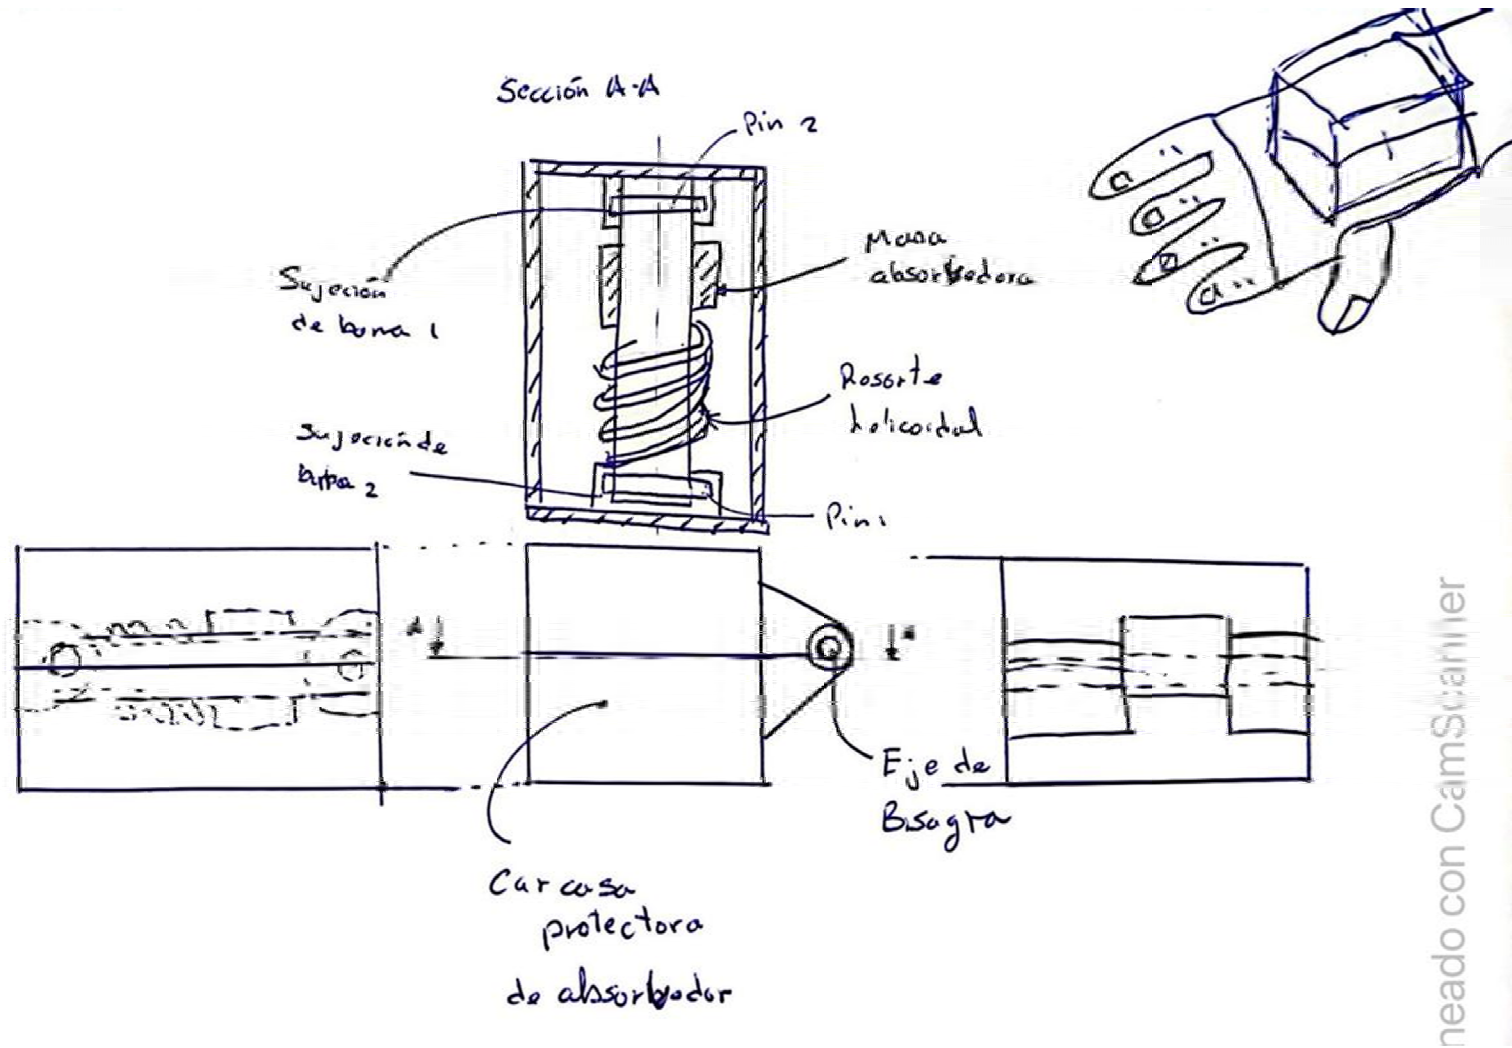 Sección A-A
Pin 2
Masa
absorbedora
Sujeción
de barra 1
Resorte
helicoidal
Sujeción de
barra 2
Pin 1
A
A
Eje de
Bisagra
Carcasa
protectora
de absorbedor
neado con CamScanner